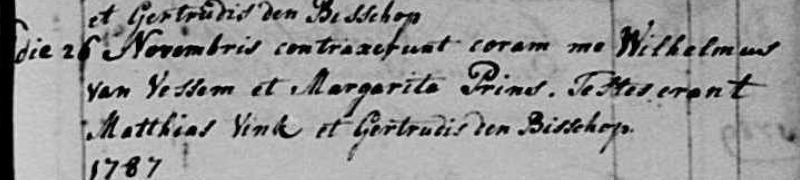 et Gertrudis den Bisschop
die 26 Novembris contraxerunt coram me Wilhelmus
van Vessem et Margarita Prins. Testes erant
Matthias Vink et Gertrudis den Bisschop.
1787